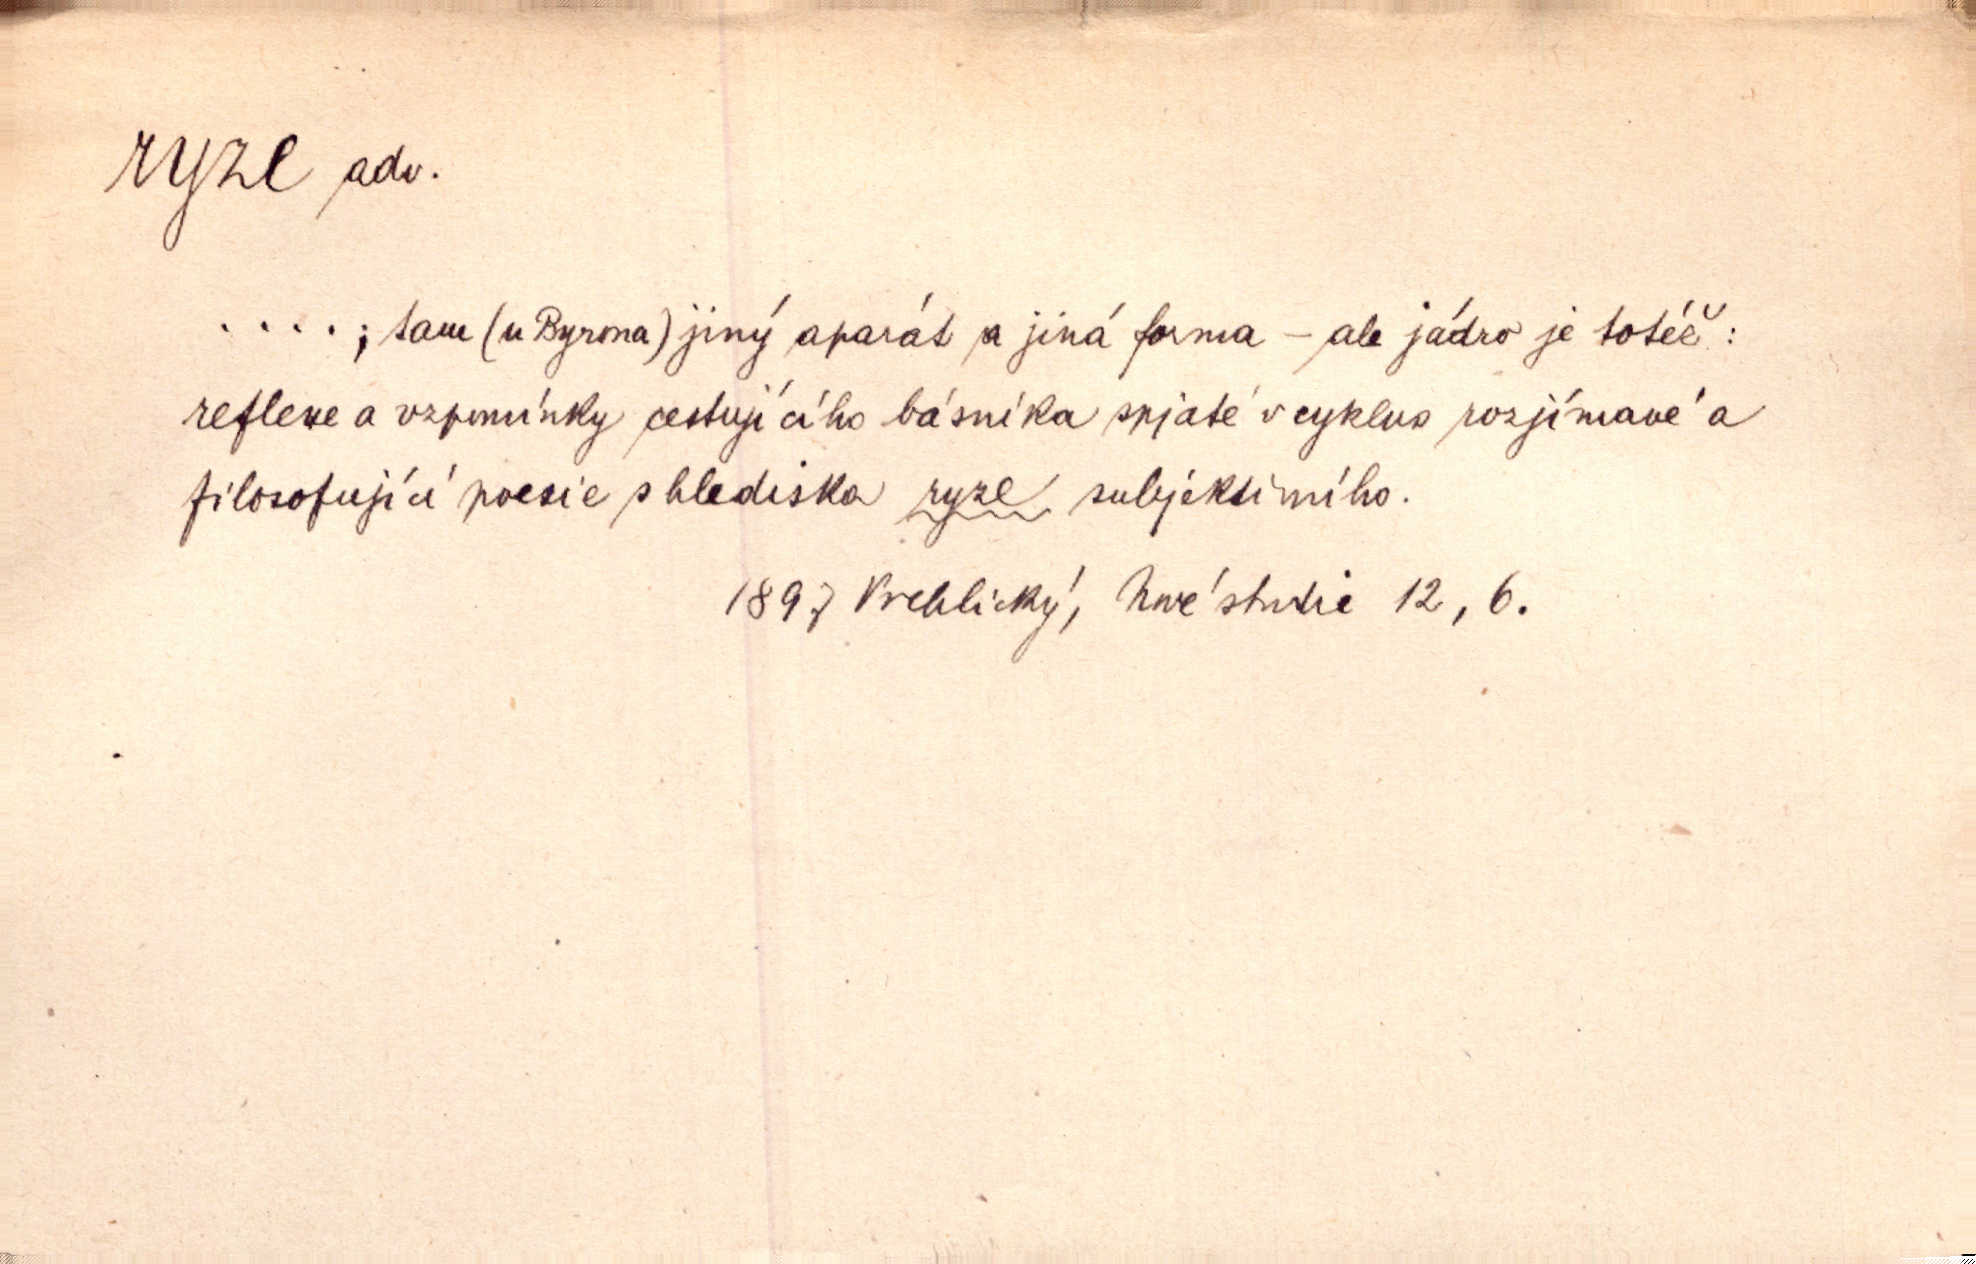 ryze adv.
....; tam (u Byrona) jiný aparát a jiná forma – ale jádro je totéž:
reflexe a vzpomínky cestujícího básníka spjaté v cyklus rozjímavé a
filosofující poesie s hlediska ryze subjektivního.
1897 Vrchlický, Nové studie 12, 6.